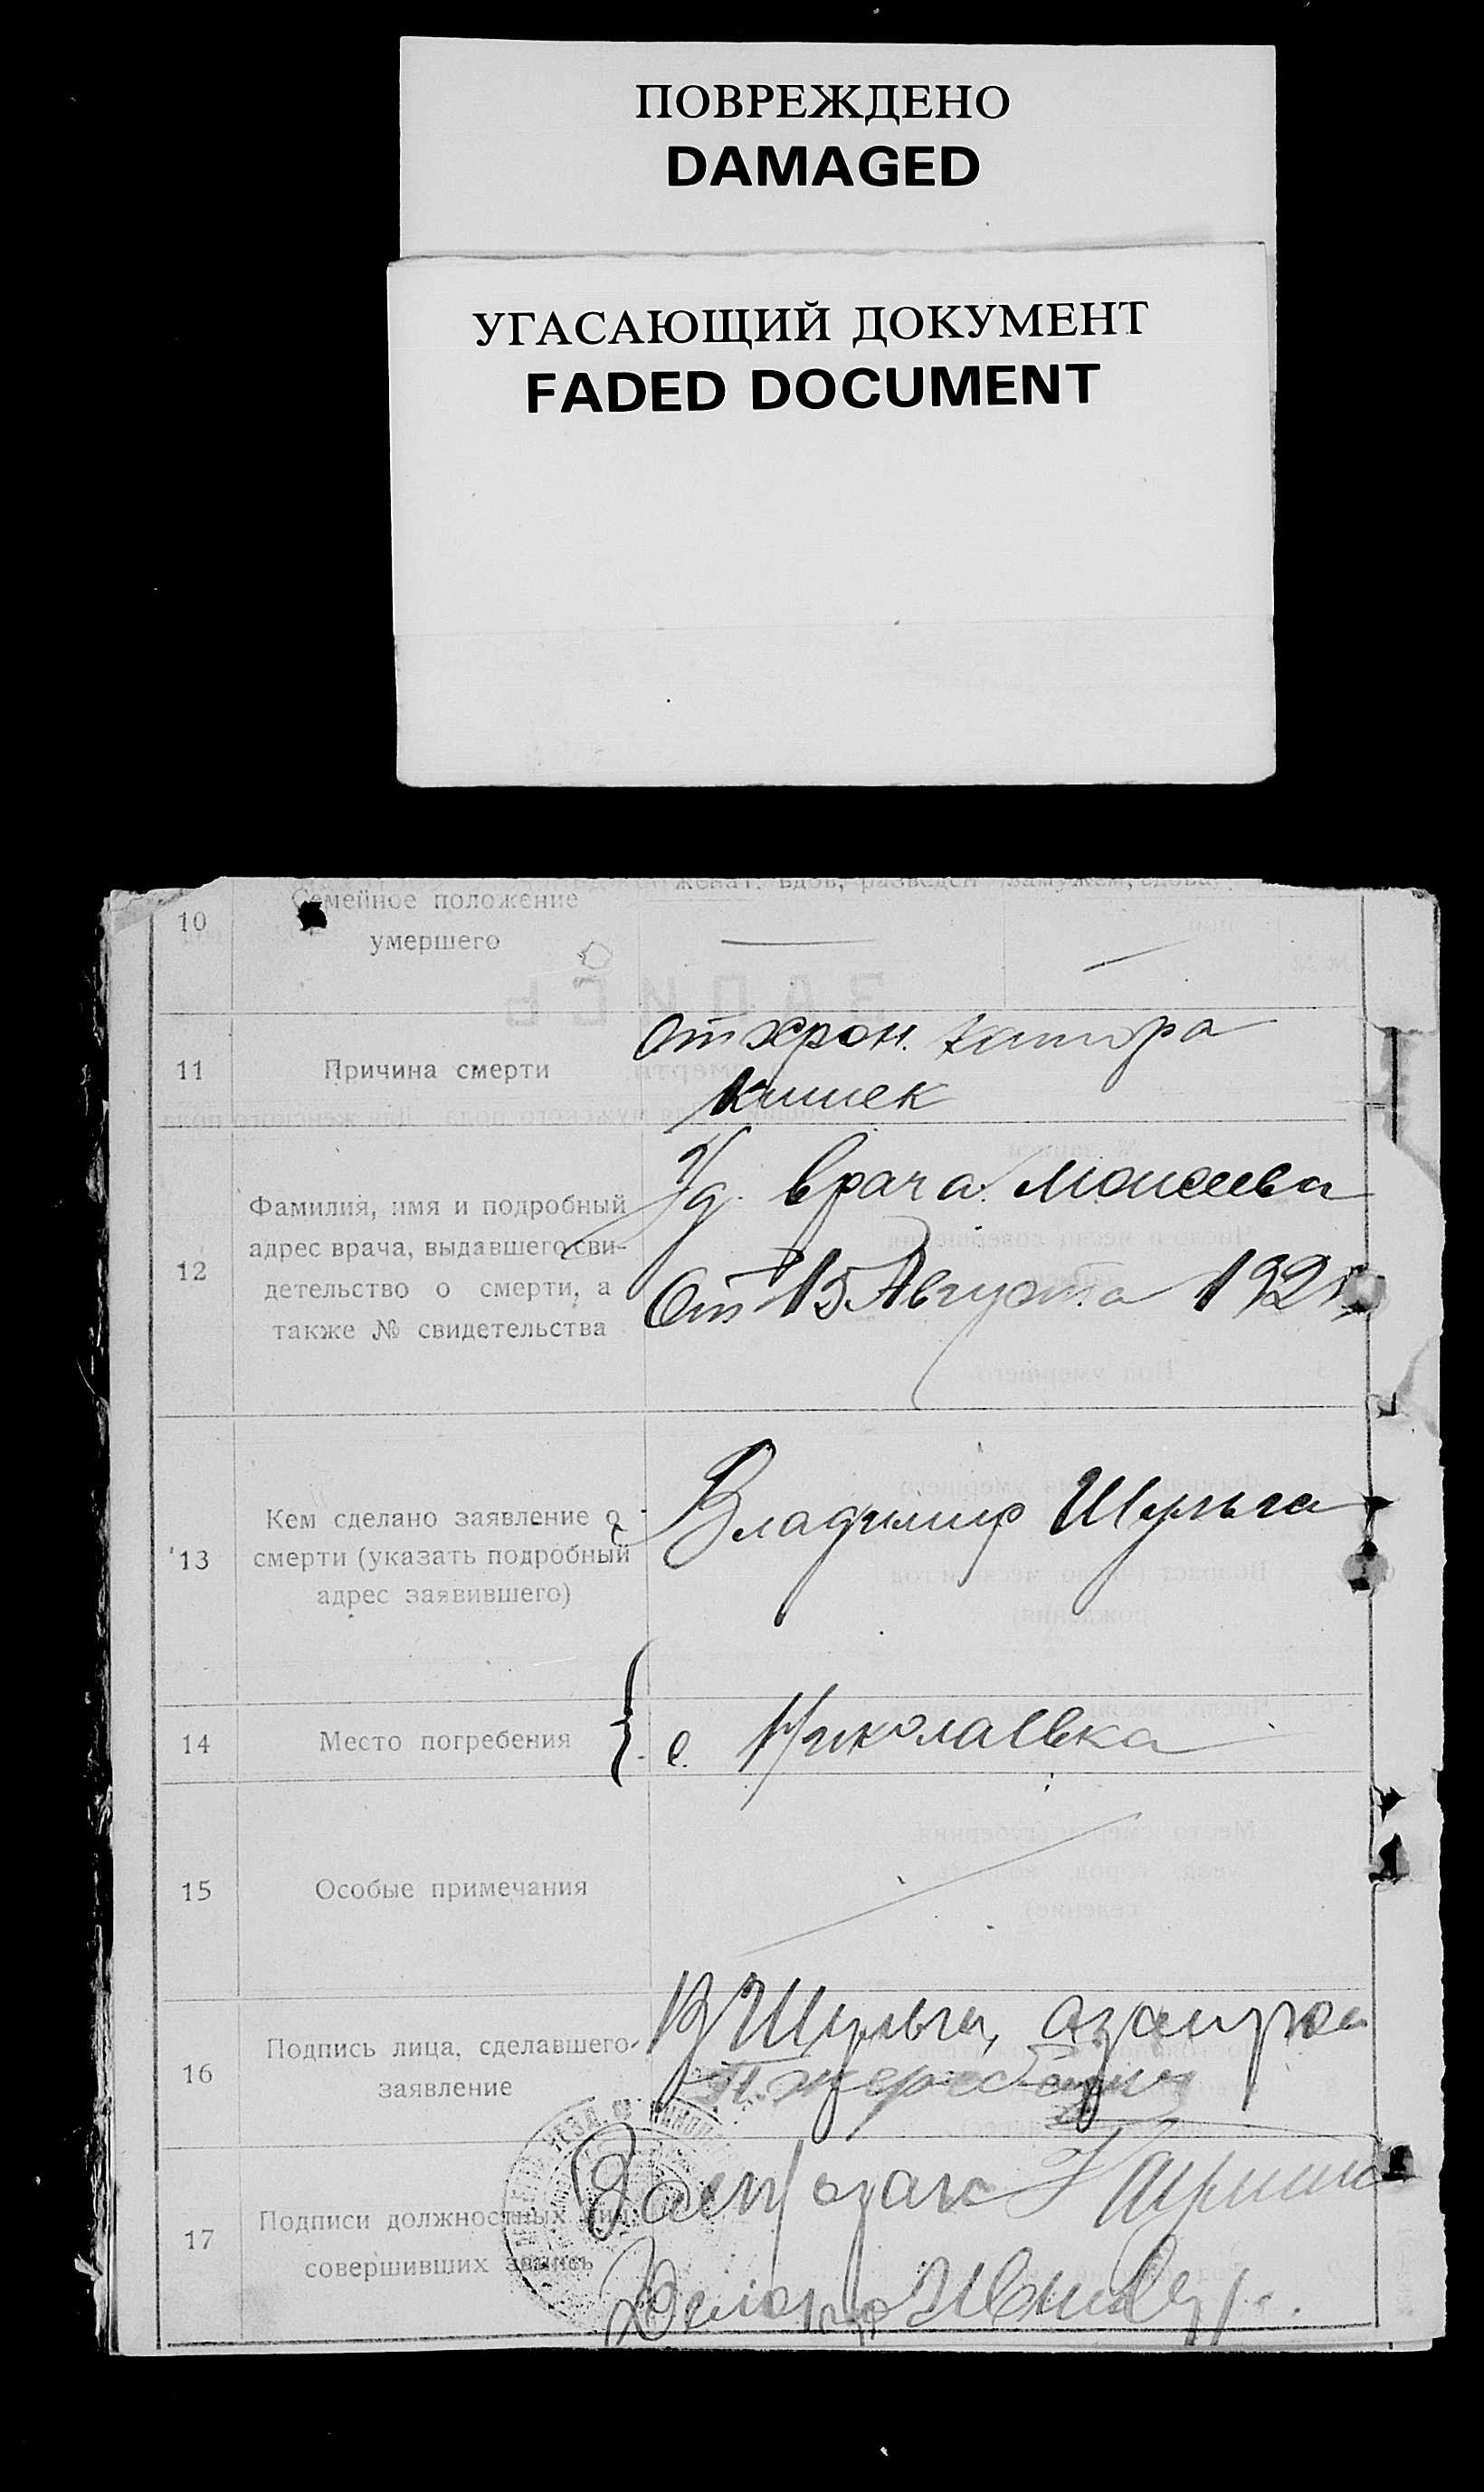 ПОВРЕЖДЕНО
DAMAGED
УГАСАЮЩИЙ ДОКУМЕНТ
FADED DOCUMENT
женат, вдов, разведен замужем, вдова
10
Семейное положение
умершего
11
Причина смерти
от хрон. катара
кишек
12
Фамилия, имя и подробный
адрес врача, выдавшего сви-
детельство о смерти, а
также № свидетельства
Уд. врача Моисеева
От 15 Августа 192
13
Кем сделано заявление о
смерти (указать подробный
адрес заявившего)
Владимир Шульга
14
Место погребения
с. Николаевка
15
Особые примечания
16
Подпись лица, сделавшего
заявление
В Шульга,
17
Подписи должностных лиц
совершивших запись
Зав
Делопр